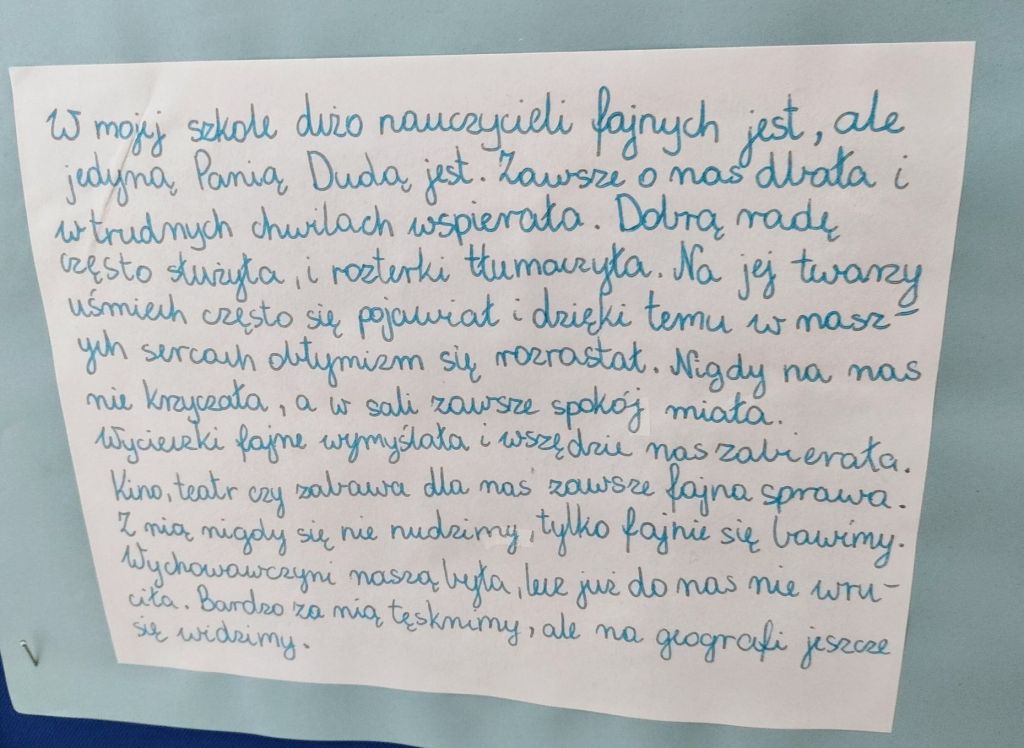 W mojej szkole dużo nauczycieli fajnych jest, ale
jedyną Panią Dudą jest. Zawsze o nas dbała i
w trudnych chwilach wspierała. Dobrą radę
często służyła, i rozterki tłumaczyła. Na jej twarzy
uśmiech często się pojawiał i dzięki temu w nasz=
ych sercach obtymizm się rozrastał. Nigdy na nas
nie krzyczała, a w sali zawsze spokój miała.
Wycieczki fajne wymyślała i wszędzie nas zabierała.
Kino, teatr czy zabawa dla nas zawsze fajna sprawa.
Z nią nigdy się nie nudzimy, tylko fajnie się bawimy.
Wychowawczyni naszą była, lecz już do nas nie wru-
ciła. Bardzo za nią tęsknimy, ale na geografi jeszcze
się widzimy.